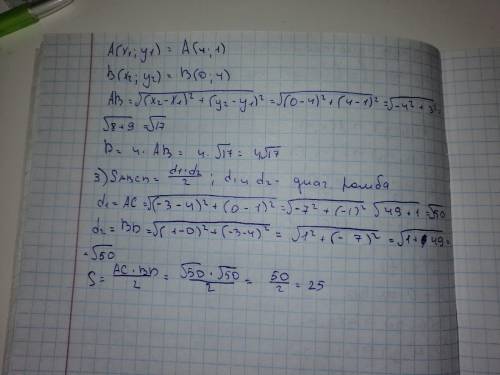 A(x₁; y₁) = A(4; 1)
B(x₂; y₂) = B(0; 4)
AB = √(x₂-x₁)² + (y₂-y₁)² = √(0-4)² + (4-1)² = √-4² + 3² =
√8+9 = √17
P = 4 · AB = 4 · √17 = 4√17
3) SABCD = d₁·d₂/2 ; d₁ и d₂ - диаг. ромба
d₁ = AC = √(-3-4)² + (0-1)² = √-7² + (-1)² √49+1 = √50
d₂ = BD = √(1-0)² + (-3-4)² = √1² + (-7)² = √1+49 =
= √50
S = AC · BD/2 = √50 · √50/2 = 50/2 = 25